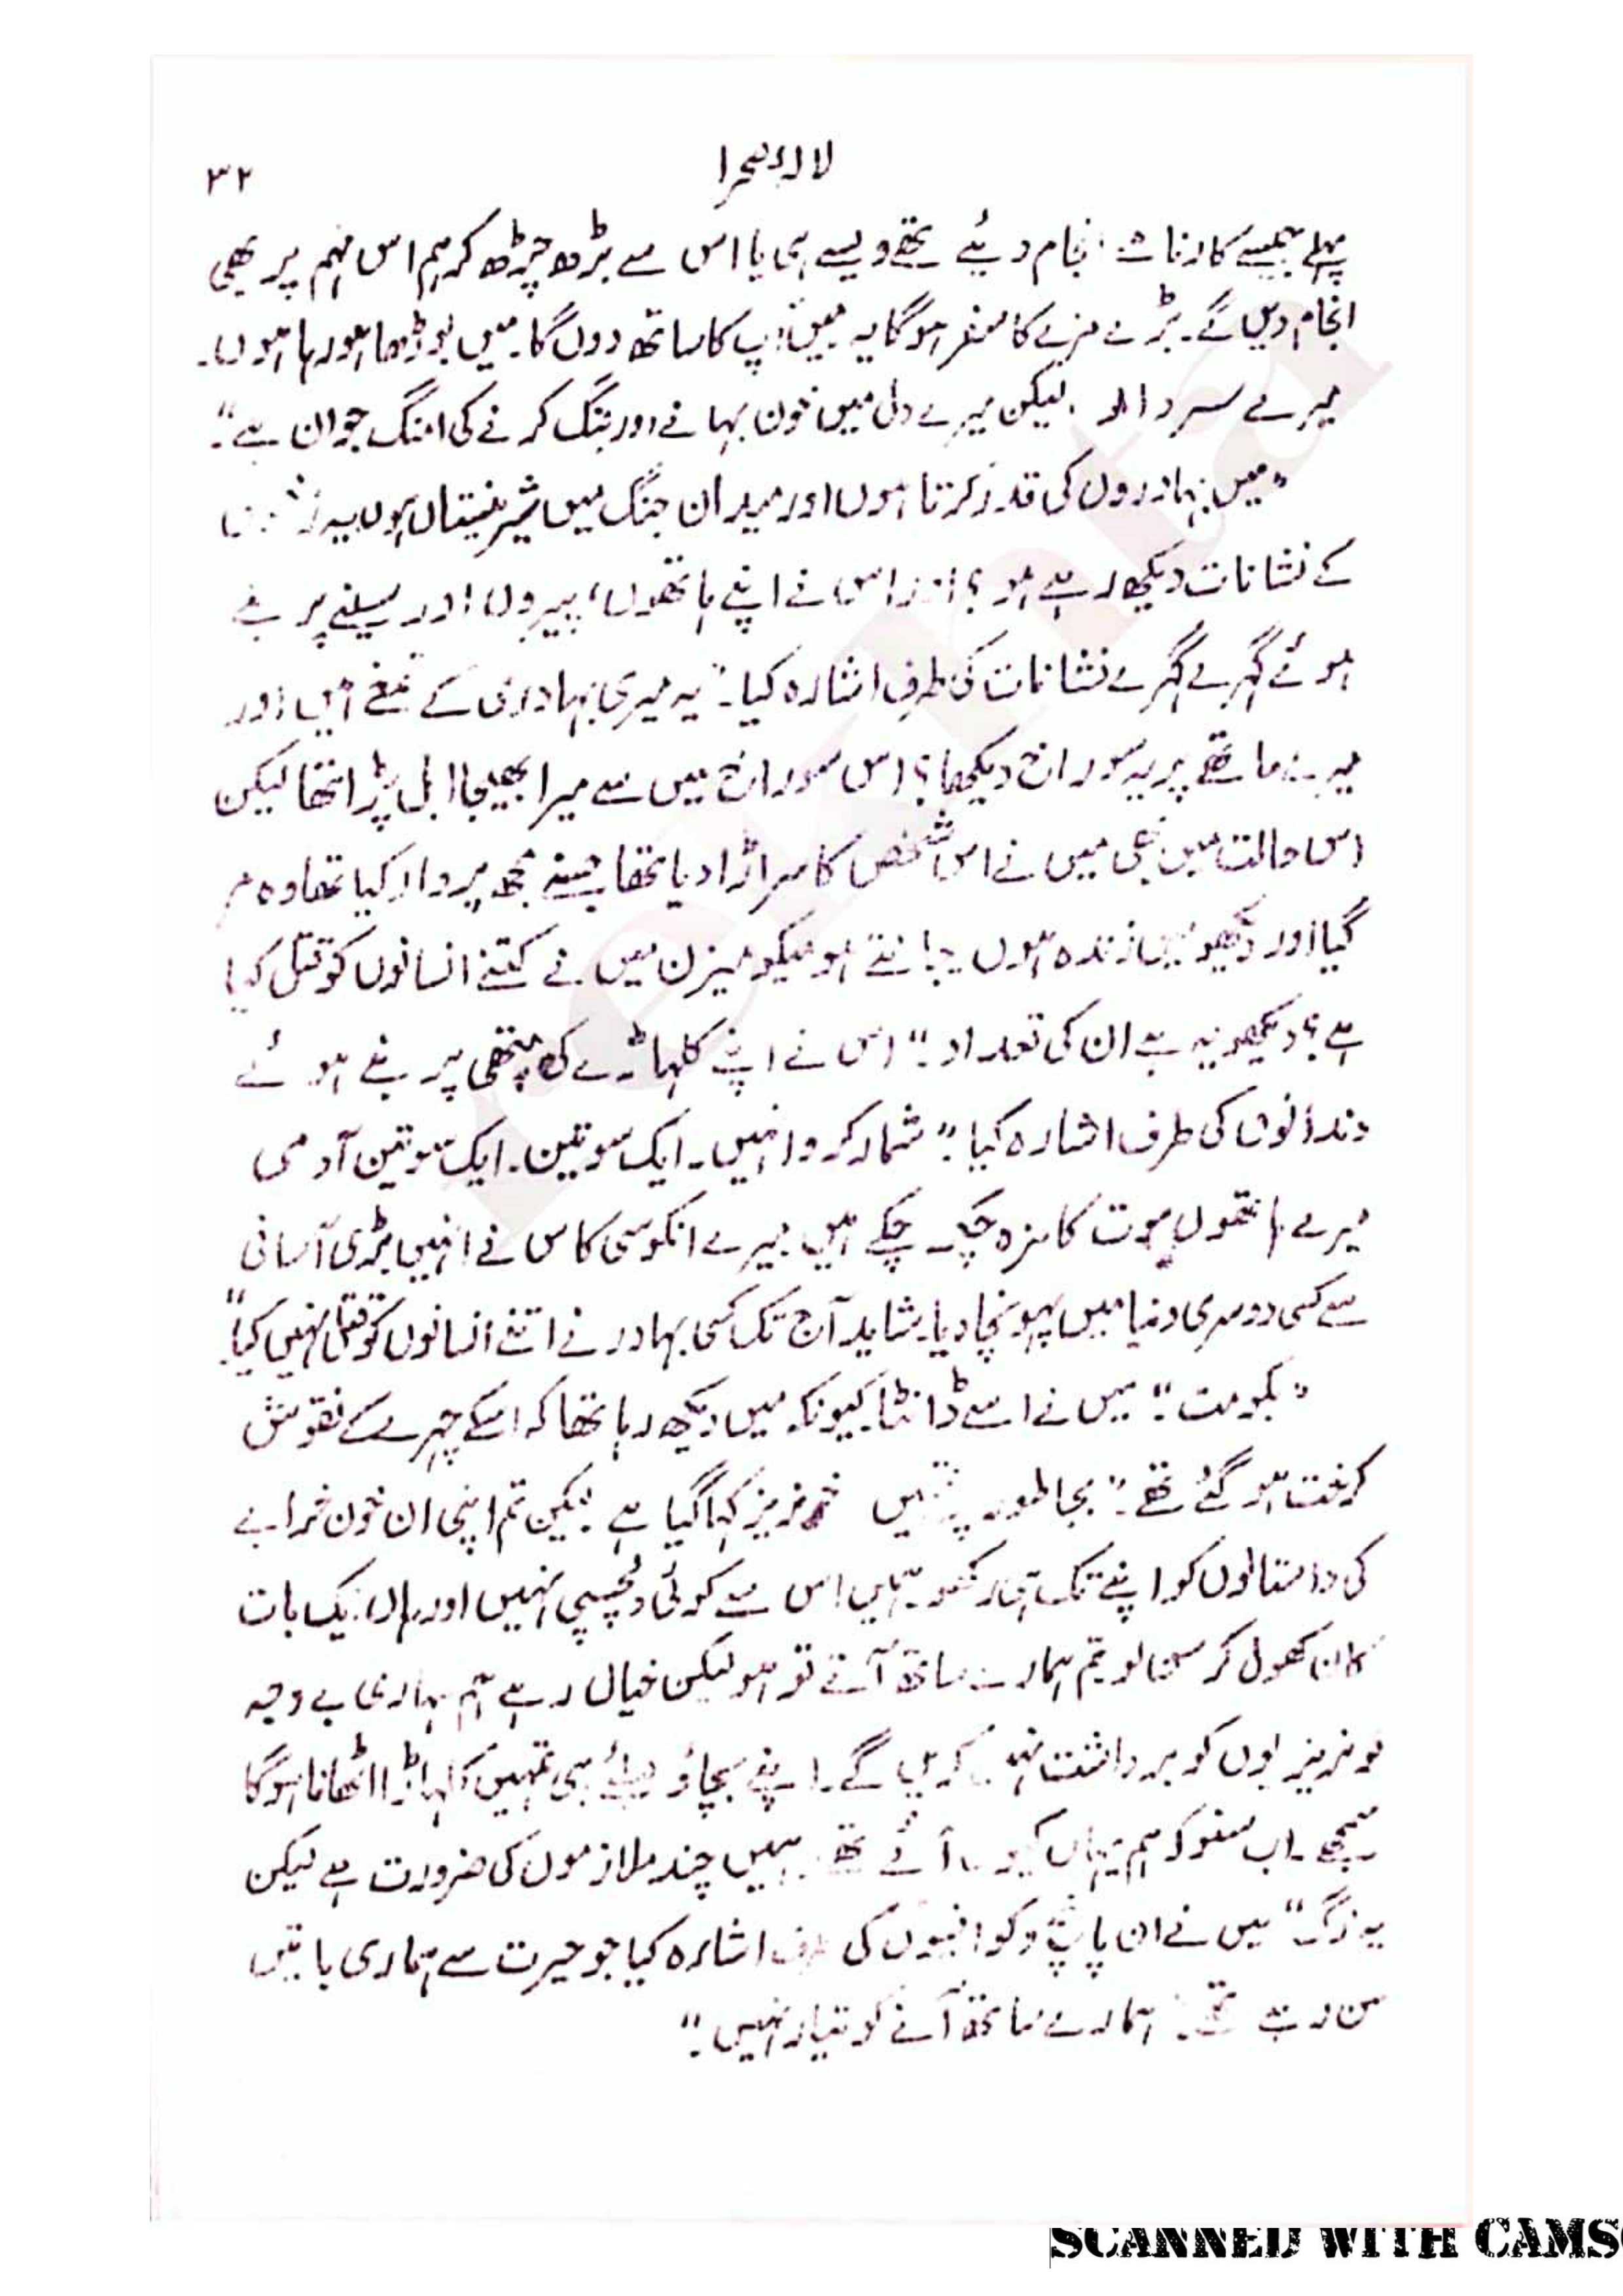 لالۂ صحرا
۳۲
پہلے جیسے کارنامے انجام دئیے تھے ویسے ہی یا اس سے بڑھ چڑھ کر ہم اس مہم پر بھی
انجام دیں گے۔ بڑے مزے کا سفر ہوگا یہ میں آپ کا ساتھ دوں گا۔ میں بوڑھا ہو رہا ہوں۔
میرے سردار۔ لیکن میرے دل میں خون بہانے اور جنگ کرنے کی امنگ جوان ہے"۔
"میں بہادروں کی قدر کرتا ہوں اور میدان جنگ میں شیر نیستاں ہوں یہ
کے نشانات دیکھ رہے ہو؟ اور اس نے اپنے ہاتھوں، پیروں اور سینے پر بنے
ہوئے گہرے گہرے نشانات کی طرف اشارہ کیا۔ "یہ میری بہادری کے تمغے ہیں اور
میرے ماتھے پر یہ سوراخ دیکھا؟ اس سوراخ میں سے میرا بھیجا ابل پڑا تھا لیکن
اس حالت میں بھی میں نے اس شخص کا سر اڑا دیا تھا جسنے مجھ پر وار کیا تھا وہ مر
گیا اور دیکھو میں زندہ ہوں۔ جانتے ہو میکومیزن میں نے کتنے انسانوں کو قتل کیا
ہے؟ دیکھو یہ ہے ان کی تعداد۔" اس نے اپنے کلہاڑے کی ہتھی پر بنے ہوئے
دندانوں کی طرف اشارہ کیا۔ "شمار کرو انہیں۔ ایک سو تین۔ ایک سو تین آدمی
میرے ہاتھوں موت کا مزہ چکھ چکے ہیں میرے انکوسی کاس نے انہیں بڑی آسانی
سے کسی دوسری دنیا میں پہونچا دیا۔ شاید آج تک کسی بہادر نے اتنے انسانوں کو قتل نہیں کیا"۔
"بکو مت"۔ میں نے اسے ڈانٹا کیونکہ میں دیکھ رہا تھا کہ اسکے چہرے کے نقوش
کرخت ہو گئے تھے۔ "بجا طور پر تمہیں خونریز کہا گیا ہے لیکن تم اپنی ان خون خرابے
کی داستانوں کو اپنے تک ہی رکھو ہمیں اس سے کوئی دلچسپی نہیں اور ہاں ایک بات
کان کھول کر سن لو تم ہمارے ساتھ آتے تو ہو لیکن خیال رہے ہم تمہاری بے وجہ
خونریزیوں کو برداشت نہیں کریں گے۔ اپنے بچاؤ کیلئے ہی تمہیں کلہاڑا اٹھانا ہوگا
سمجھے۔ اب سنو کہ ہم یہاں کیوں آئے تھے۔ ہمیں چند ملازموں کی ضرورت ہے لیکن
یہ لوگ" میں نے ان پانچ وکوانیوں کی طرف اشارہ کیا جو حیرت سے ہماری باتیں
سن رہے تھے۔ ہمارے ساتھ آنے کو تیار نہیں۔"
SCANNED WITH CAMS